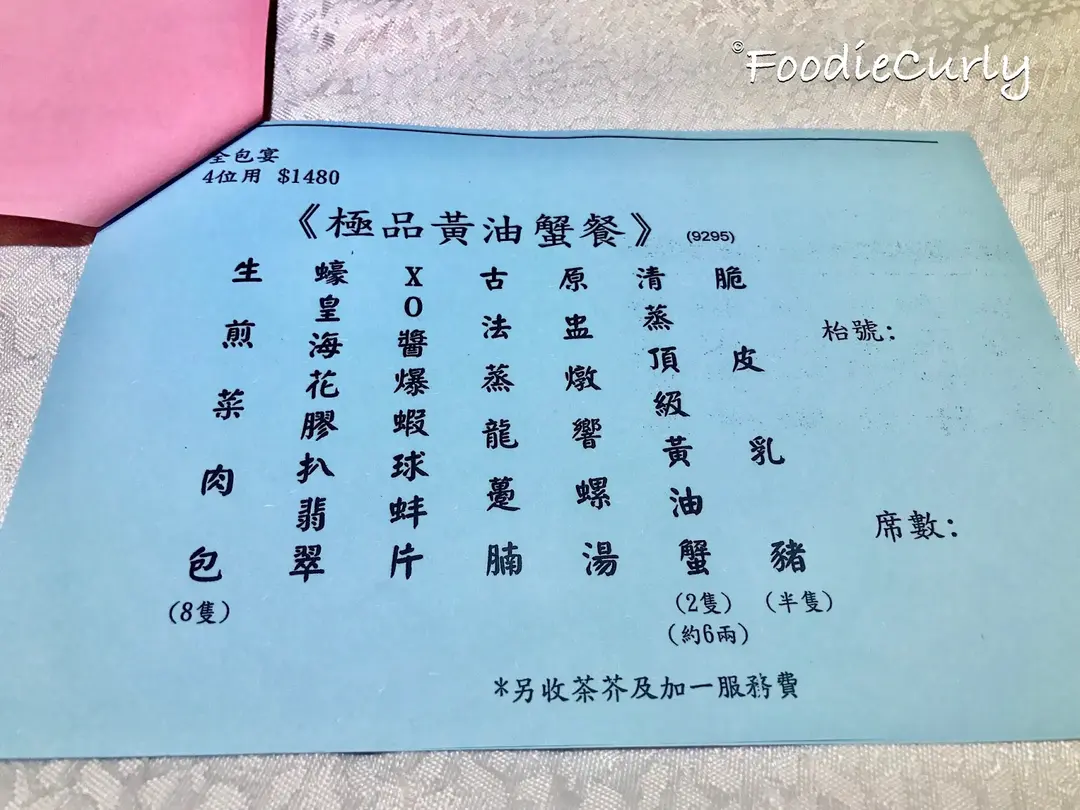 ©FoodieCurly
全包宴
4位用 $1480
《極品黃油蟹餐》 (9295)
脆皮乳豬
(半隻)
清蒸頂級黃油蟹
(2隻)
(約6兩)
原盅燉響螺湯
古法蒸龍躉腩
XO醬爆蝦球蚌片
蠔皇海花膠扒翡翠
生煎菜肉包
(8隻)
枱號:
席數:
*另收茶芥及加一服務費